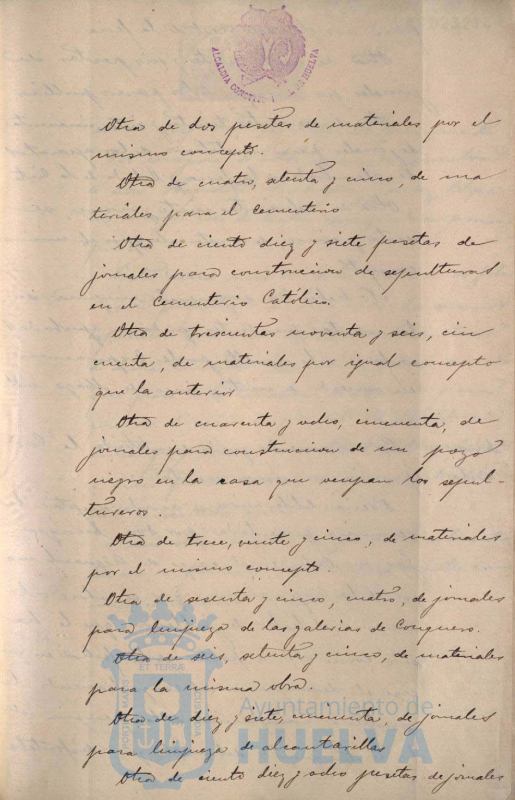 ALCALDIA CONSTITUCIONAL DE HUELVA
Otra de dos pesetas de materiales por el
mismo concepto.
Otra de cuatro, setenta y cinco, de ma
teriales para el Cementerio
Otra de ciento diez y siete pesetas de
jornales para construccion de sepulturas
en el Cementerio Católico.
Otra de trescientas noventa y seis, cin
cuenta, de materiales por igual concepto
que la anterior
Otra de cuarenta y ocho, cincuenta, de
jornales para construccion de un pozo
negro en la casa que ocupan los sepul-
tureros.
Otra de trece, veinte y cinco, de materiales
por el mismo concepto.
Otra de sesenta y cinco, cuatro, de jornales
para limpieza de las galerias de Conquero.
Otra de seis, setenta y cinco, de materiales
para la misma obra.
Otra de diez y siete, cincuenta, de jornales
para limpieza de alcantarillas
Otra de ciento diez y ocho pesetas de jornales
ET TERRÆ
Ayuntamiento de
HUELVA